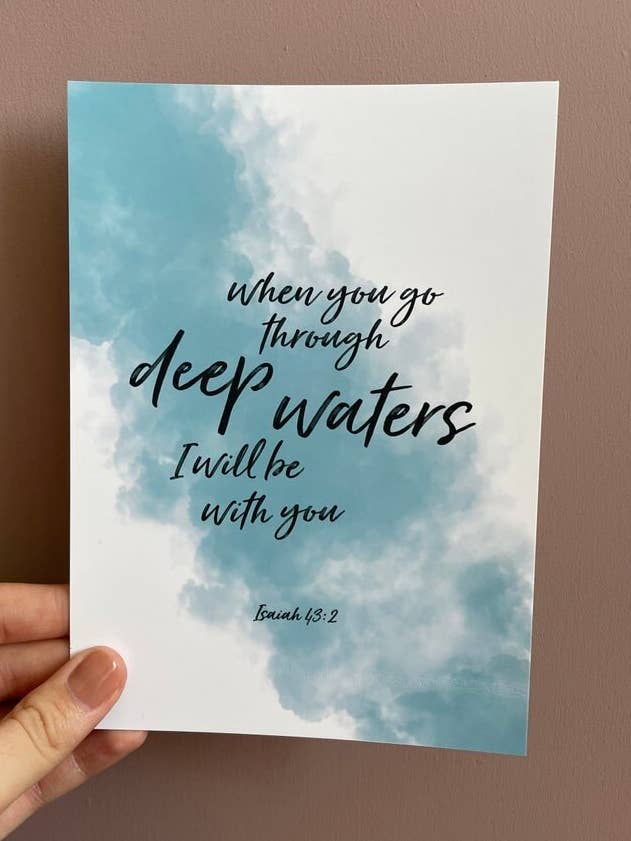 when you go
through
deep waters
I will be
with you
Isaiah 43:2